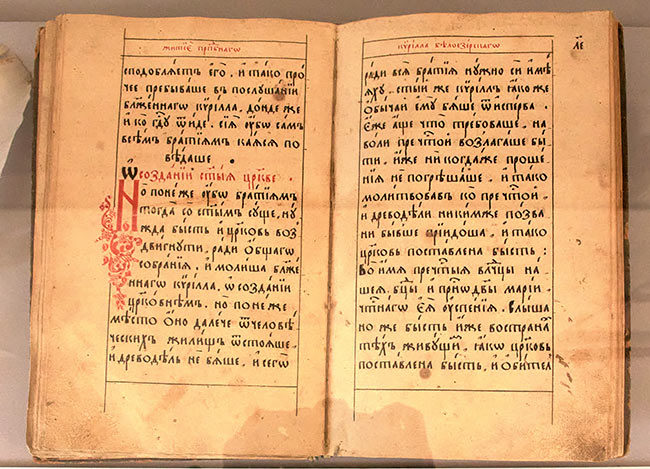 житїе прпбнагѡ
сподоблѧетъ его . и тако про
чее пребываше въ послꙋшанїи
блженнагѡ кѷрілла, донде же
и ко гдꙋ ѿиде . сїѧ ꙋбѡ самъ
всемъ братїѧмъ каѧсѧ по
ведаше .
Ѡ созданїи стыѧ цркве .
Но понеже ꙋбѡ братїѧмъ
тогда со стымъ сꙋще, нꙋ
жда бысть и црковь воз
двигнꙋти, ради ѻбщагѡ
собранїѧ . и молиша блже
ннагѡ кѷрілла, ѡ созданїи
црковнемъ . но понеже
место ѻно далече ѿ человѣ
ческихъ жилищъ ѿстоѧше .
и древоделъ не бѧше, и сегѡ
кѷрілла бѣлоезерскагѡ
ле
ради всѧ братїѧ нꙋжно си имѣ
ѧхꙋ . стый же кѷріллъ ꙗкоже
ѻбычай емꙋ бѧше ѿисперва .
Еже аще что требоваше, на
воли пречтой возлагаше бы
ти . иже ни когдаже проше
нїѧ не погрешаше . и тако
молитвовавъ ко пречтой .
и древодели никимже позва
ни бывше приидоша . и тако
црковь поставлена бысть :
Во имѧ пречтыѧ влчцы на
шеѧ . бцы и приснодвы марїи
чтнагѡ еѧ ꙋспенїѧ . слыша
но же бысть иже во странахъ
техъ живꙋщїй . ꙗкѡ црковь
поставлена бысть, и ѻбител